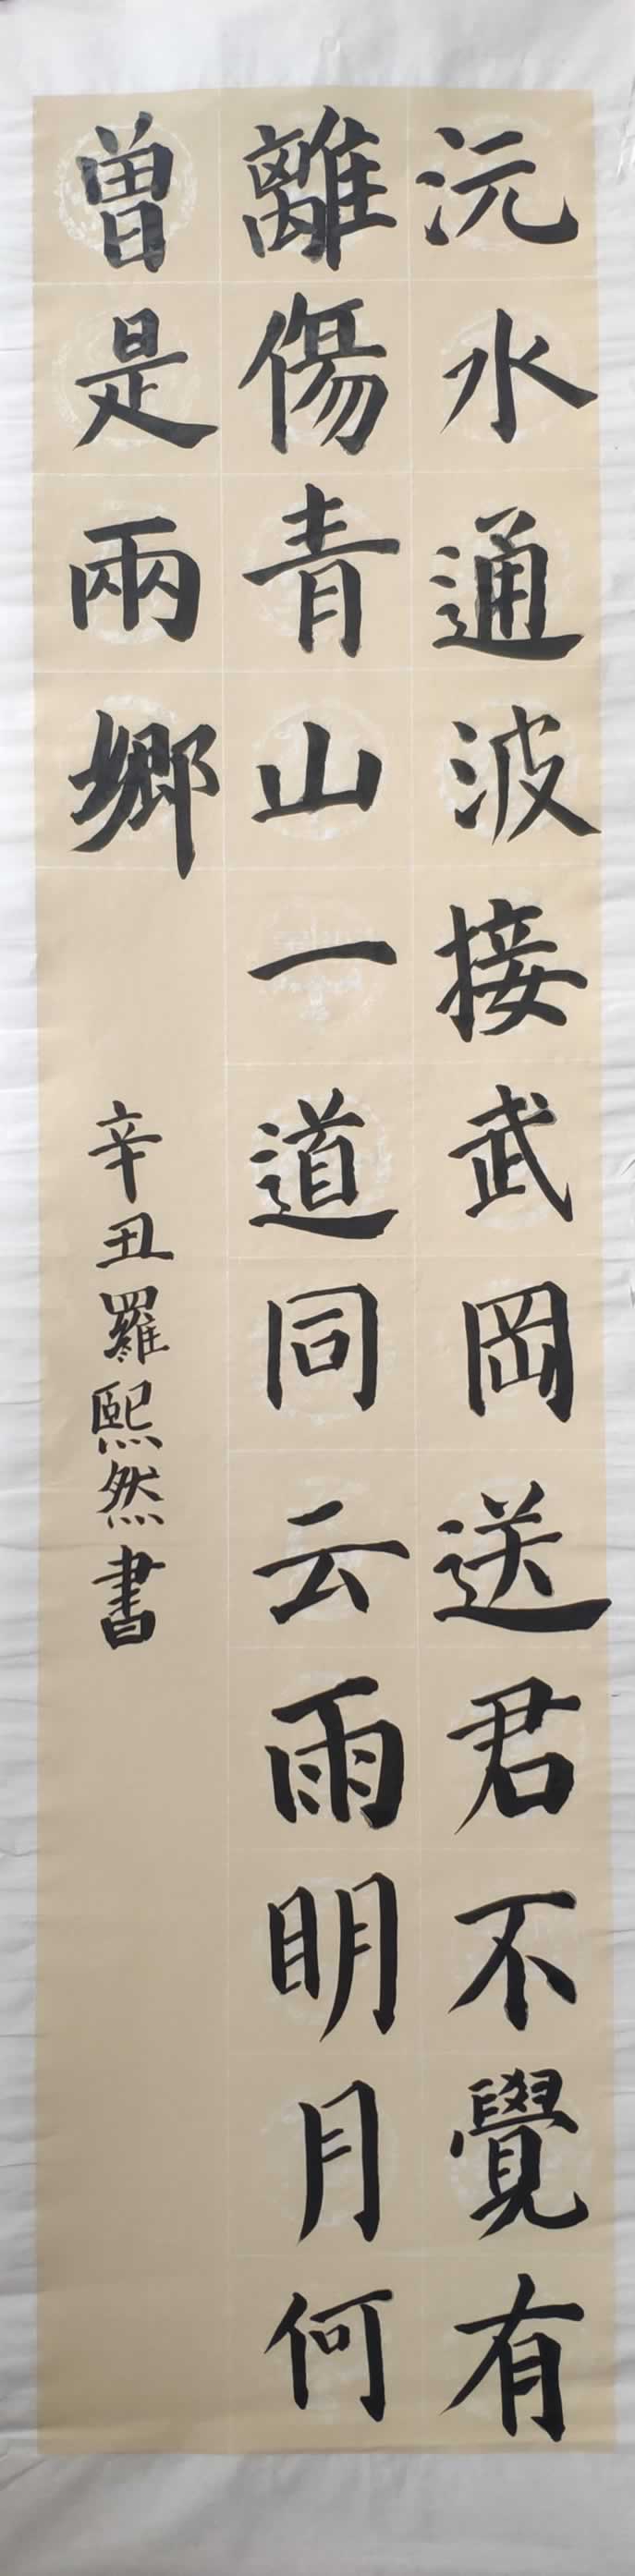 沅水通波接武岡送君不覺有
離傷青山一道同云雨明月何
曽是兩鄉
辛丑羅熙然書